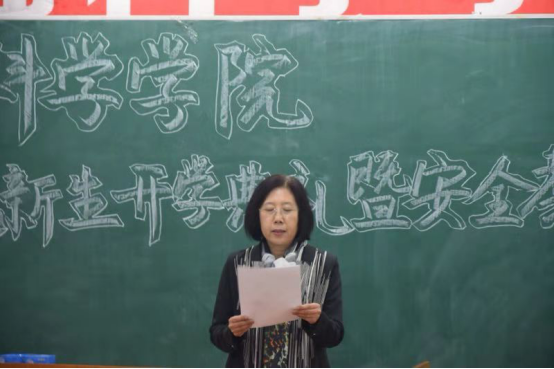 科学学院
新生开学典礼暨安全教